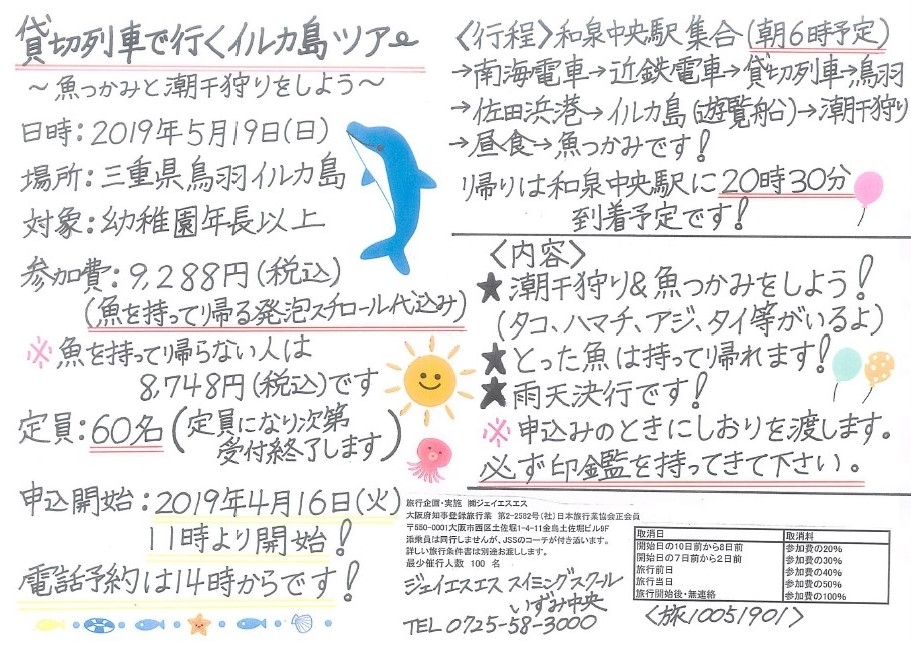 貸切列車で行くイルカ島ツアー
～魚つかみと潮干狩りをしよう～
日時：2019年5月19日(日)
場所：三重県鳥羽イルカ島
対象：幼稚園年長以上
参加費：9,288円(税込)
(魚を持って帰る発泡スチロール代込み)
※魚を持って帰らない人は
8,748円(税込)です
定員：60名(定員になり次第
受付終了します)
申込開始：2019年4月16日(火)
11時より開始！
電話予約は14時からです！
〈行程〉和泉中央駅集合(朝6時予定)
→南海電車→近鉄電車→貸切列車→鳥羽
→佐田浜港→イルカ島(遊覧船)→潮干狩り
→昼食→魚つかみです！
帰りは和泉中央駅に20時30分
到着予定です！
〈内容〉
★潮干狩り&魚つかみをしよう！
(タコ、ハマチ、アジ、タイ等がいるよ)
★とった魚は持って帰れます！
★雨天決行です！
※申込みのときにしおりを渡します。
必ず印鑑を持ってきて下さい。
旅行企画・実施 ㈱ジェイエスエス
大阪府知事登録旅行業 第2-2582号(社)日本旅行業協会正会員
〒550-0001大阪市西区土佐堀1-4-11金鳥土佐堀ビル9F
添乗員は同行しませんが、JSSのコーチが付き添います。
詳しい旅行条件書は別途お渡しします。
最少催行人数 100 名
ジェイエスエス スイミングスクール
いずみ中央
TEL 0725-58-3000
取消日 取消料
開始日の10日前から8日前 参加費の20%
開始日の7日前から2日前 参加費の30%
旅行前日 参加費の40%
旅行当日 参加費の50%
旅行開始後・無連絡 参加費の100%
〈旅10051901〉